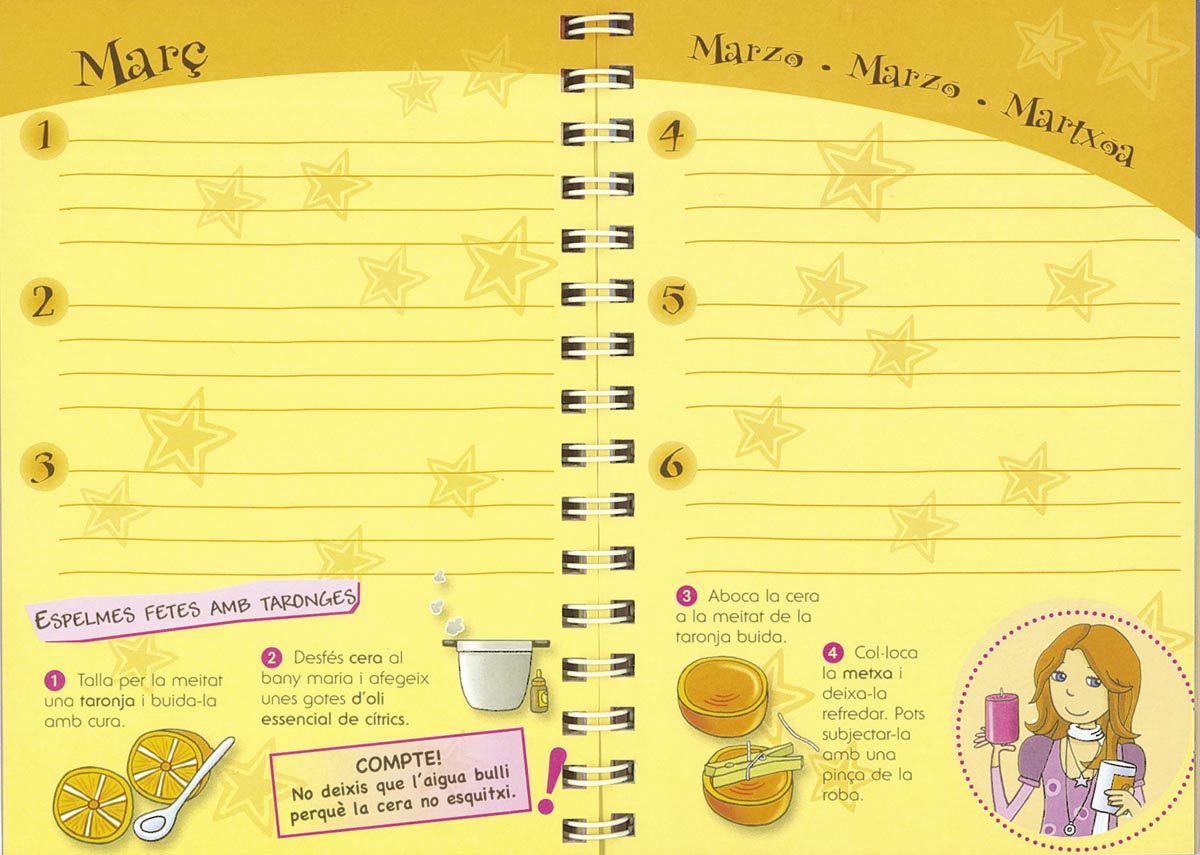 Març
1
2
3
ESPELMES FETES AMB TARONGES
1 Talla per la meitat
una taronja i buida-la
amb cura.
2 Desfés cera al
bany maria i afegeix
unes gotes d'oli
essencial de cítrics.
COMPTE!
No deixis que l'aigua bulli
perquè la cera no esquitxi.
!
Marzo • Marzo • Martxoa
4
5
6
3 Aboca la cera
a la meitat de la
taronja buida.
4 Col·loca
la metxa i
deixa-la
refredar. Pots
subjectar-la
amb una
pinça de la
roba.